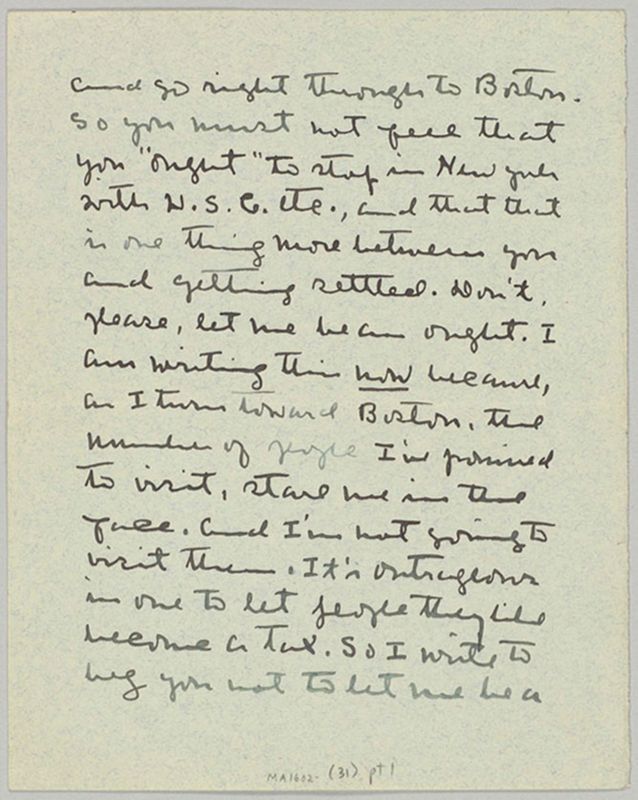 and go right through to Boston.
So you must not feel that
you "ought" to stop in New York
with W. S. C. etc., and that that
is one thing more between you
and getting settled. Don't,
please, let me be an ought. I
am writing this now because,
as I turn toward Boston, the
number of people I've promised
to visit, stare me in the
face. And I'm not going to
visit them. It's outrageous
in one to let people they like
become a tax. So I write to
beg you not to let me be a
MA1602- (31) pt 1